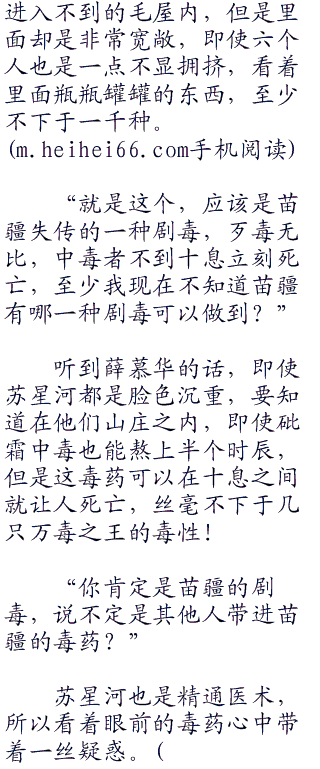 进入不到的毛屋内，但是里
面却是非常宽敞，即使六个
人也是一点不显拥挤，看着
里面瓶瓶罐罐的东西，至少
不下于一千种。
(m.heihei66.com手机阅读)
“就是这个，应该是苗
疆失传的一种剧毒，歹毒无
比，中毒者不到十息立刻死
亡，至少我现在不知道苗疆
有哪一种剧毒可以做到？”
听到薛慕华的话，即使
苏星河都是脸色沉重，要知
道在他们山庄之内，即使砒
霜中毒也能熬上半个时辰，
但是这毒药可以在十息之间
就让人死亡，丝毫不下于几
只万毒之王的毒性！
“你肯定是苗疆的剧
毒，说不定是其他人带进苗
疆的毒药？”
苏星河也是精通医术，
所以看着眼前的毒药心中带
着一丝疑惑。(